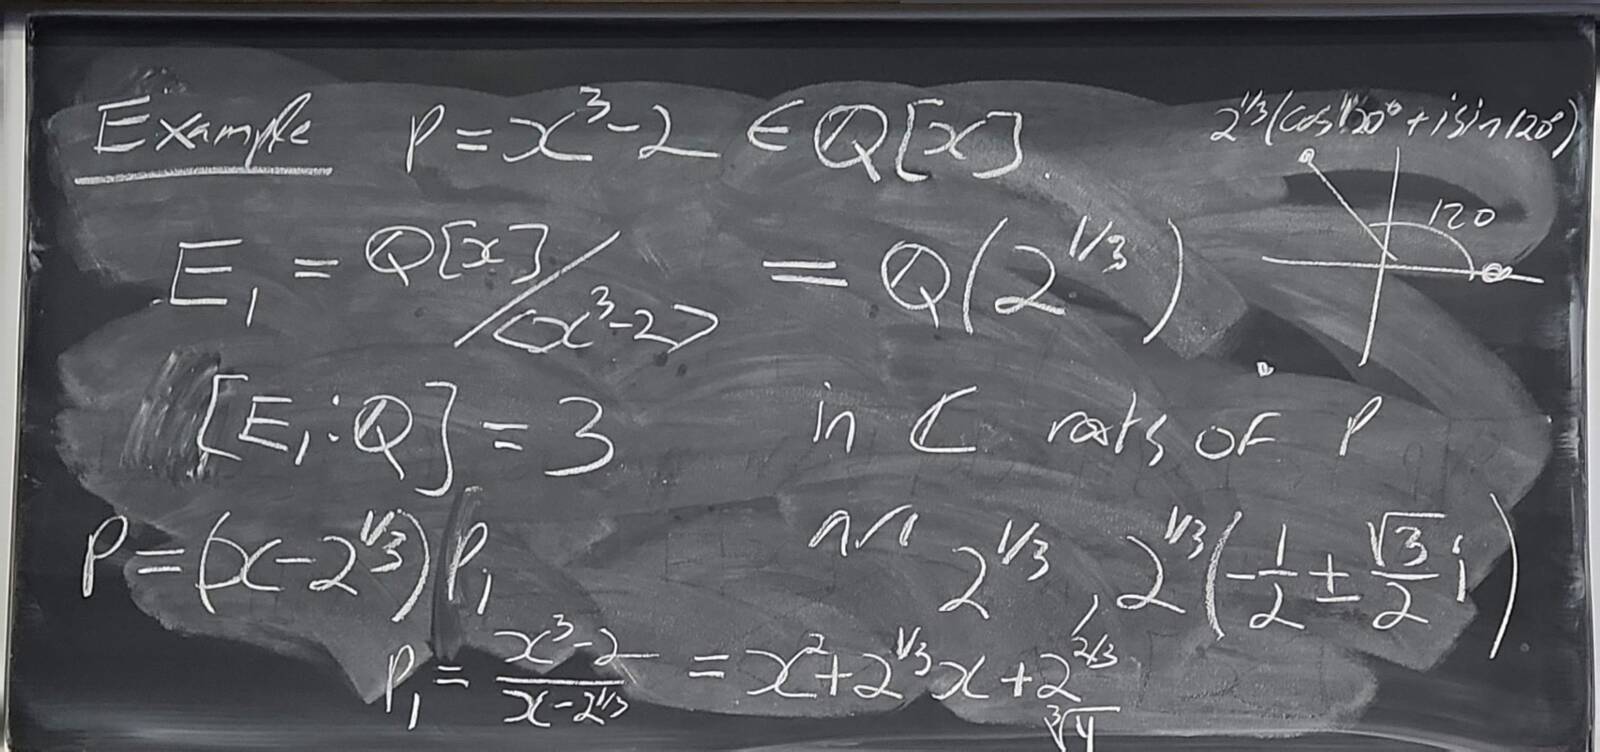 Example P = x³-2 ∈ Q[x]
2^{1/3}(cos 120° + i sin 120°)
120
E₁ = Q[x]/<x³-2> = Q(2^{1/3})
[E₁:Q] = 3
in ℂ roots of P
P = (x-2^{1/3})P₁
2^{1/3}, 2^{1/3}(-1/2 ± √3/2 i)
P₁ = x³-2/x-2^{1/3} = x²+2^{1/3}x+2^{2/3}
∛4